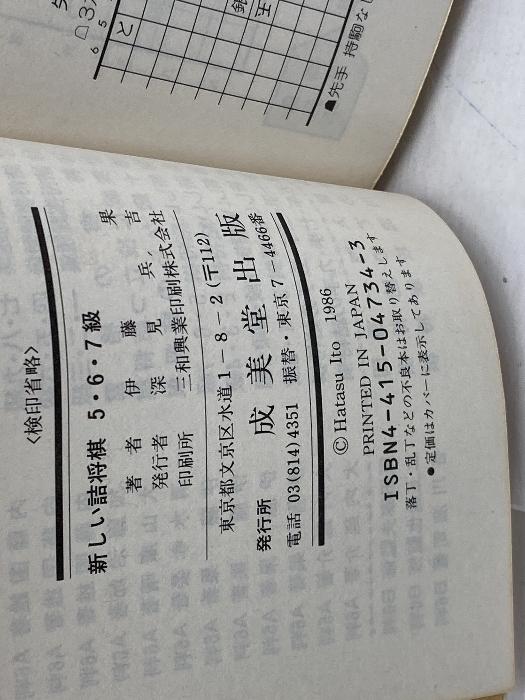 と
6 5
●先手 持駒な
〈検印省略〉
新しい詰将棋 5・6・7級
著者 伊藤果
発行者 深見兵吉
印刷所 三和興業印刷株式会社
東京都文京区水道1-8-2(〒112)
発行所 成美堂出版
電話 03(814)4351 振替・東京7-4466番
© Hatasu Ito 1986
PRINTED IN JAPAN
ISBN4-415-04734-3
落丁・乱丁などの不良本はお取り替えします
●定価はカバーに表示してあります